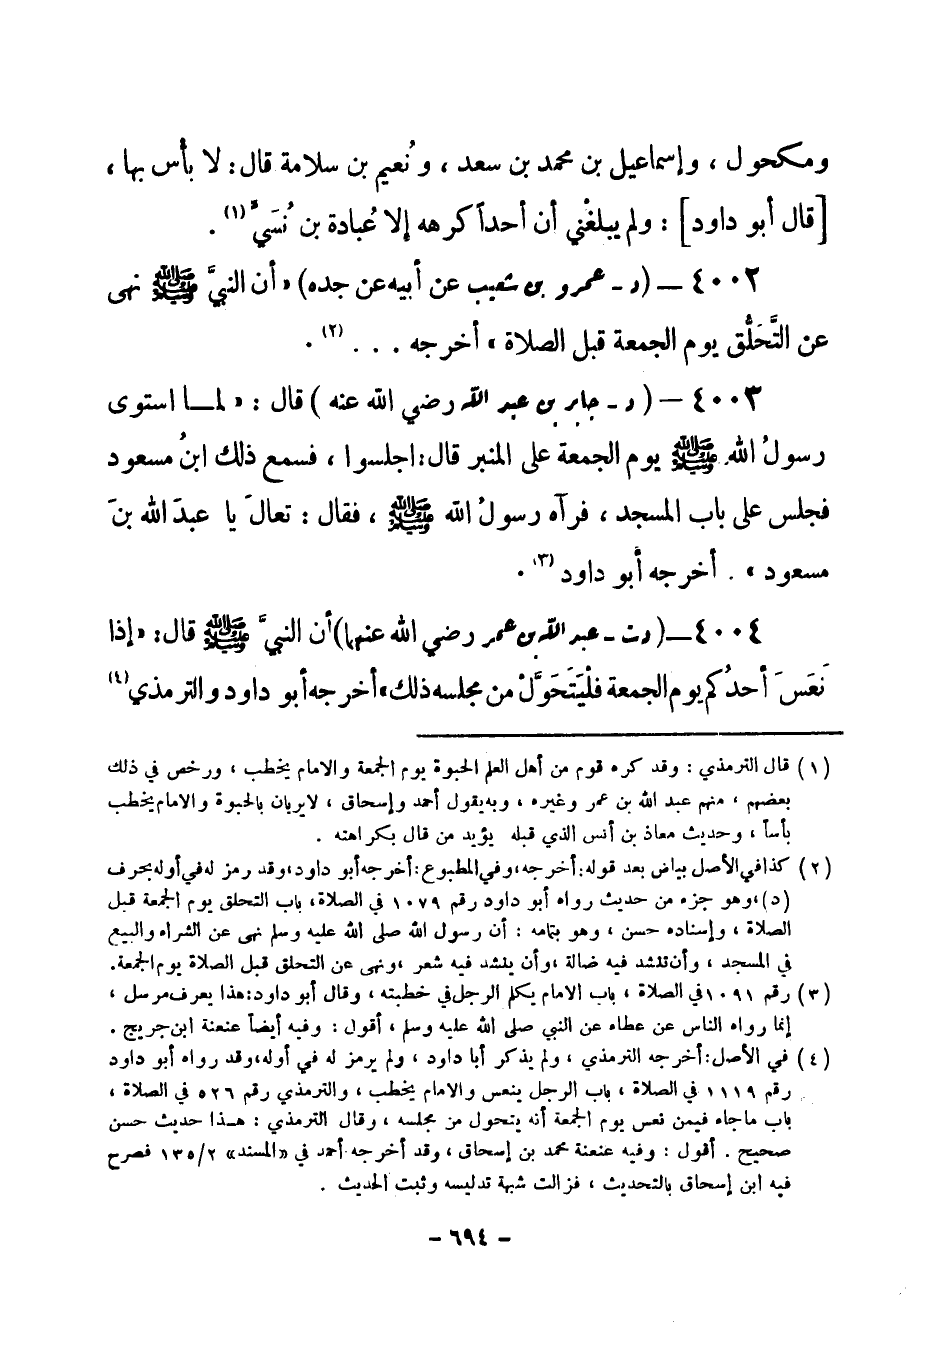 ومكحول ، وإسماعيل بن محمد بن سعد ، ونُعيم بن سلامة قال : لا بأس بها ،
[قال أبو داود] : ولم يبلغْني أن أحداً كرهه إلا عُبادة بن نُسَيٍّ (١) .
٤٠٠٢ — (د - عمرو بن شعيب عن أبيه عن جده) « أن النبيَّ ﷺ نهى
عن التَّحَلُّق يوم الجمعة قبل الصلاة » أخرجه . . . (٢) .
٤٠٠٣ — (د - جابر بن عبد الله رضي الله عنه) قال : « لمـا استوى
رسولُ الله ﷺ يوم الجمعة على المنبر قال : اجلسوا ، فسمع ذلك ابنُ مسعود
فجلس على باب المسجد ، فرآه رسولُ الله ﷺ ، فقال : تعالَ يا عبدَ الله بنَ
مسعود » . أخرجه أبو داود (٣) .
٤٠٠٤ — (د ت - عبد الله بن عمر رضي الله عنهما) أن النبيَّ ﷺ قال : « إذا
نَعَسَ أحدُكم يوم الجمعة فليَتَحَوَّلْ من مجلسه ذلك » أخرجه أبو داود والترمذي (٤)
(١) قال الترمذي : وقد كره قوم من أهل العلم الحبوة يوم الجمعة والامام يخطب ، ورخص في ذلك
بعضهم ، منهم عبد الله بن عمر وغيره ، وبه يقول أحمد وإسحاق ، لا يريان بالحبوة والامام يخطب
بأساً ، وحديث معاذ بن أنس الذي قبله يؤيد من قال بكراهته .
(٢) كذا في الأصل بياض بعد قوله : أخرجه ، وفي المطبوع : أخرجه أبو داود ، وقد رمز له في أوله بحرف
(د) ، وهو جزء من حديث رواه أبو داود رقم ١٠٧٩ في الصلاة ، باب التحلق يوم الجمعة قبل
الصلاة ، وإسناده حسن ، وهو بتمامه : أن رسول الله صلى الله عليه وسلم نهى عن الشراء والبيع
في المسجد ، وأن تنشد فيه ضالة ، وأن ينشد فيه شعر ، ونهى عن التحلق قبل الصلاة يوم الجمعة .
(٣) رقم ١٠٩١ في الصلاة ، باب الامام يكلم الرجل في خطبته ، وقال أبو داود : هذا يعرف مرسل ،
إنما رواه الناس عن عطاء عن النبي صلى الله عليه وسلم ، أقول : وفيه أيضاً عنعنة ابن جريج .
(٤) في الأصل : أخرجه الترمذي ، ولم يذكر أبا داود ، ولم يرمز له في أوله ، وقد رواه أبو داود
رقم ١١١٩ في الصلاة ، باب الرجل ينعس والامام يخطب ، والترمذي رقم ٥٢٦ في الصلاة ،
باب ماجاء فيمن نعس يوم الجمعة أنه يتحول من مجلسه ، وقال الترمذي : هـذا حديث حسن
صحيح . أقول : وفيه عنعنة محمد بن إسحاق ، وقد أخرجه أحمد في «المسند» ١٣٥/٢ فصرح
فيه ابن إسحاق بالتحديث ، فزالت شبهة تدليسه وثبت الحديث .
- ٦٩٤ -